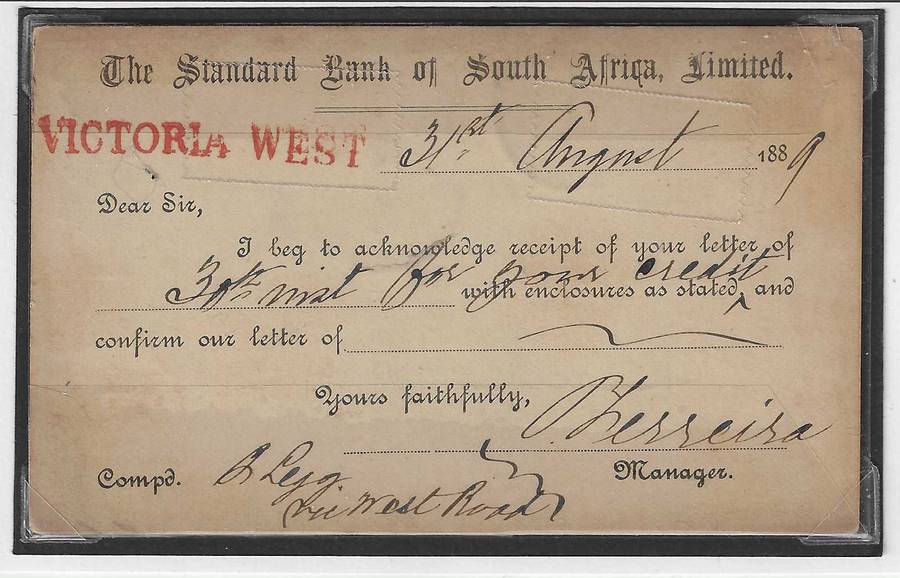 The Standard Bank of South Africa, Limited.
VICTORIA WEST 31st August 1889
Dear Sir,
I beg to acknowledge receipt of your letter of
30th inst for your credit with enclosures as stated, and
confirm our letter of
Yours faithfully,
Ferreira
Compd. Manager.
Vic West Road